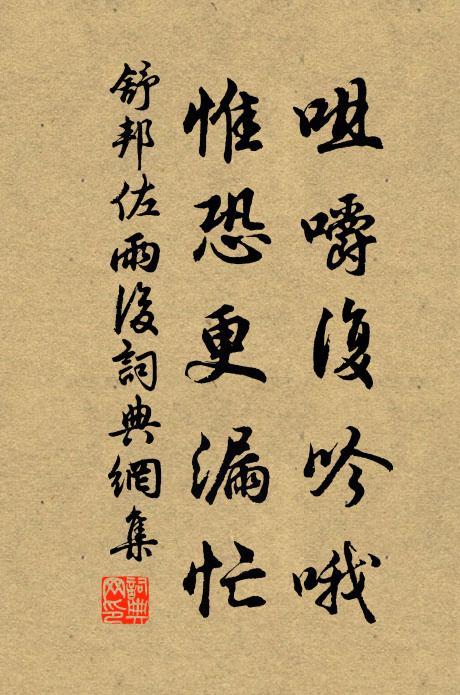 咀嚼復吟哦
惟恐更漏忙
舒邦佐雨後詞典網集
詞典網印